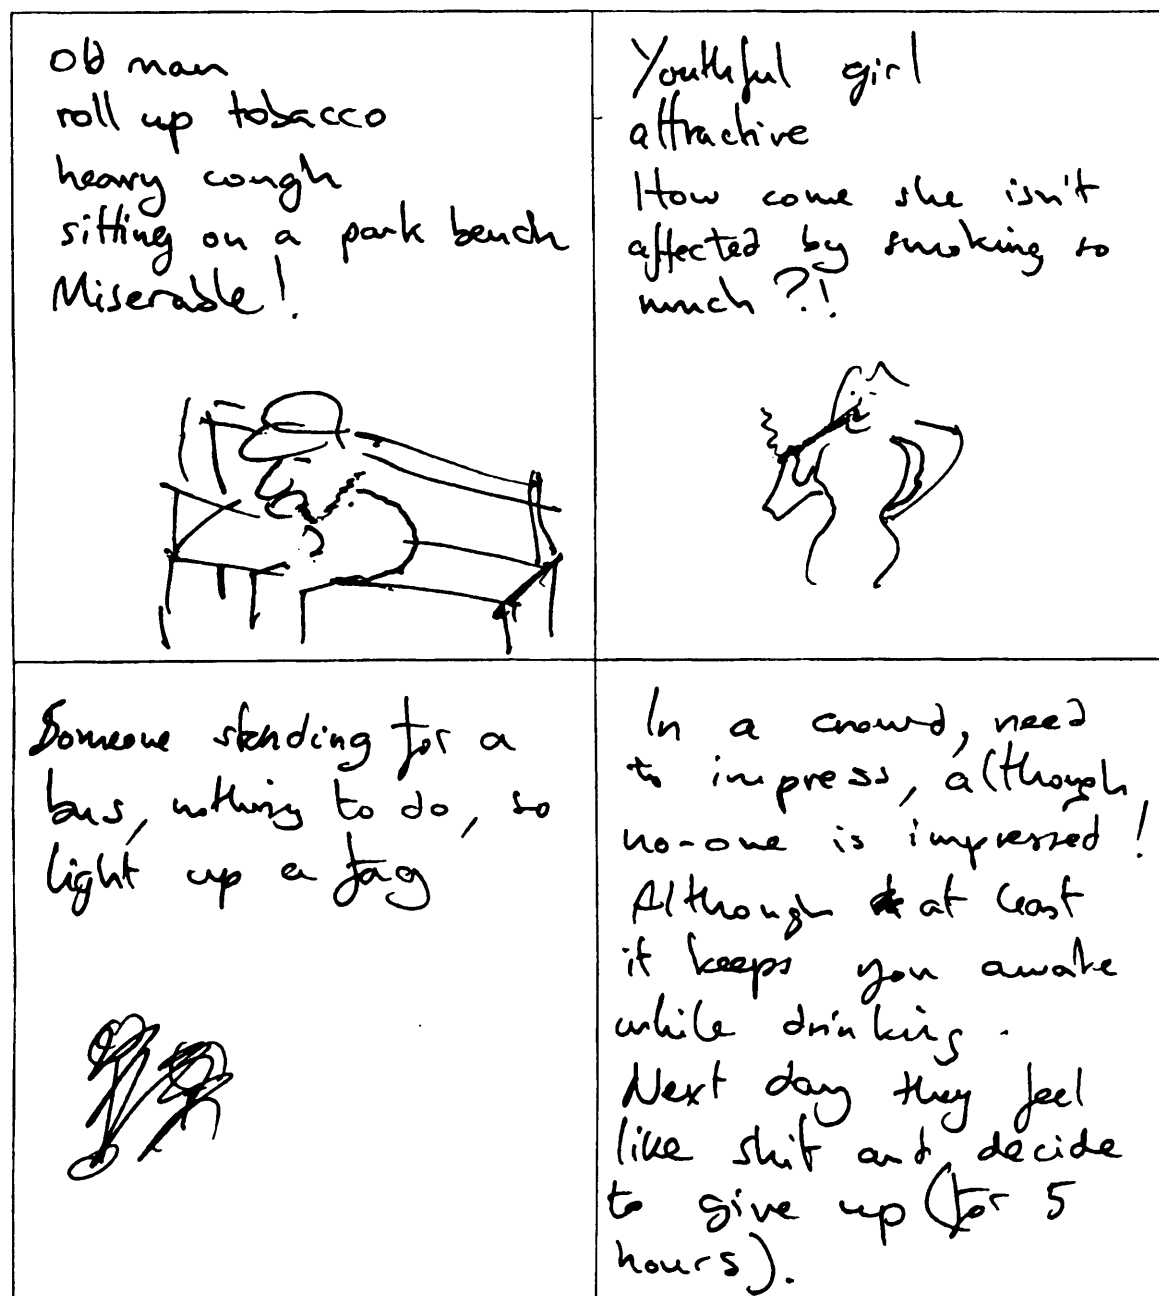 Old man
roll up tobacco
heavy cough
sitting on a park bench
Miserable!
Youthful girl
attractive
How come she isn't
affected by smoking so
much?!
Someone standing for a
bus, nothing to do, so
light up a fag
In a crowd, need
to impress, although
no-one is impressed!
Although at least
it keeps you awake
while drinking.
Next day they feel
like shit and decide
to give up (for 5
hours).